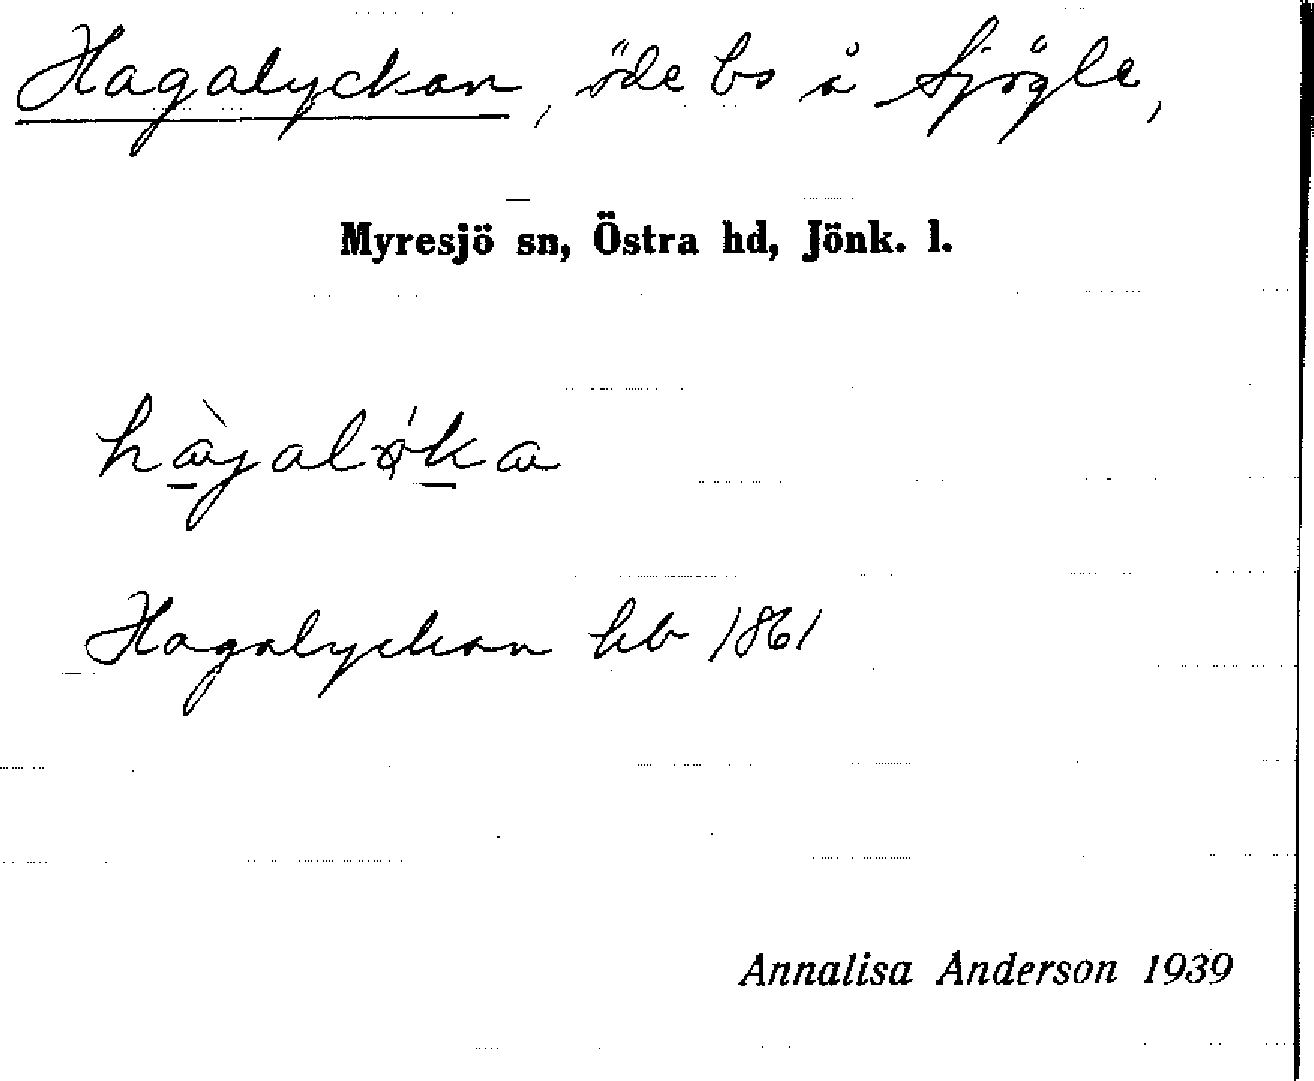 Hagalyckan, öde bs å Sjögle,
Myresjö sn, Östra hd, Jönk. l.
Hagalyckan hb 1861
Annalisa Anderson 1939